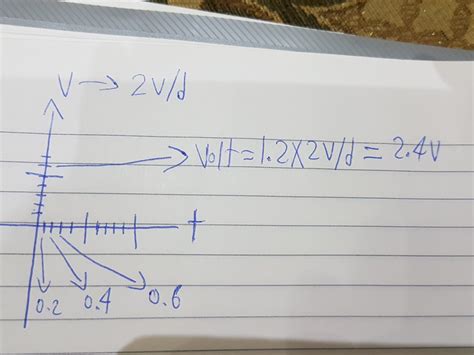 V → 2V/d
Volt = 1.2X2V/d = 2.4V
t
0.2 0.4 0.6